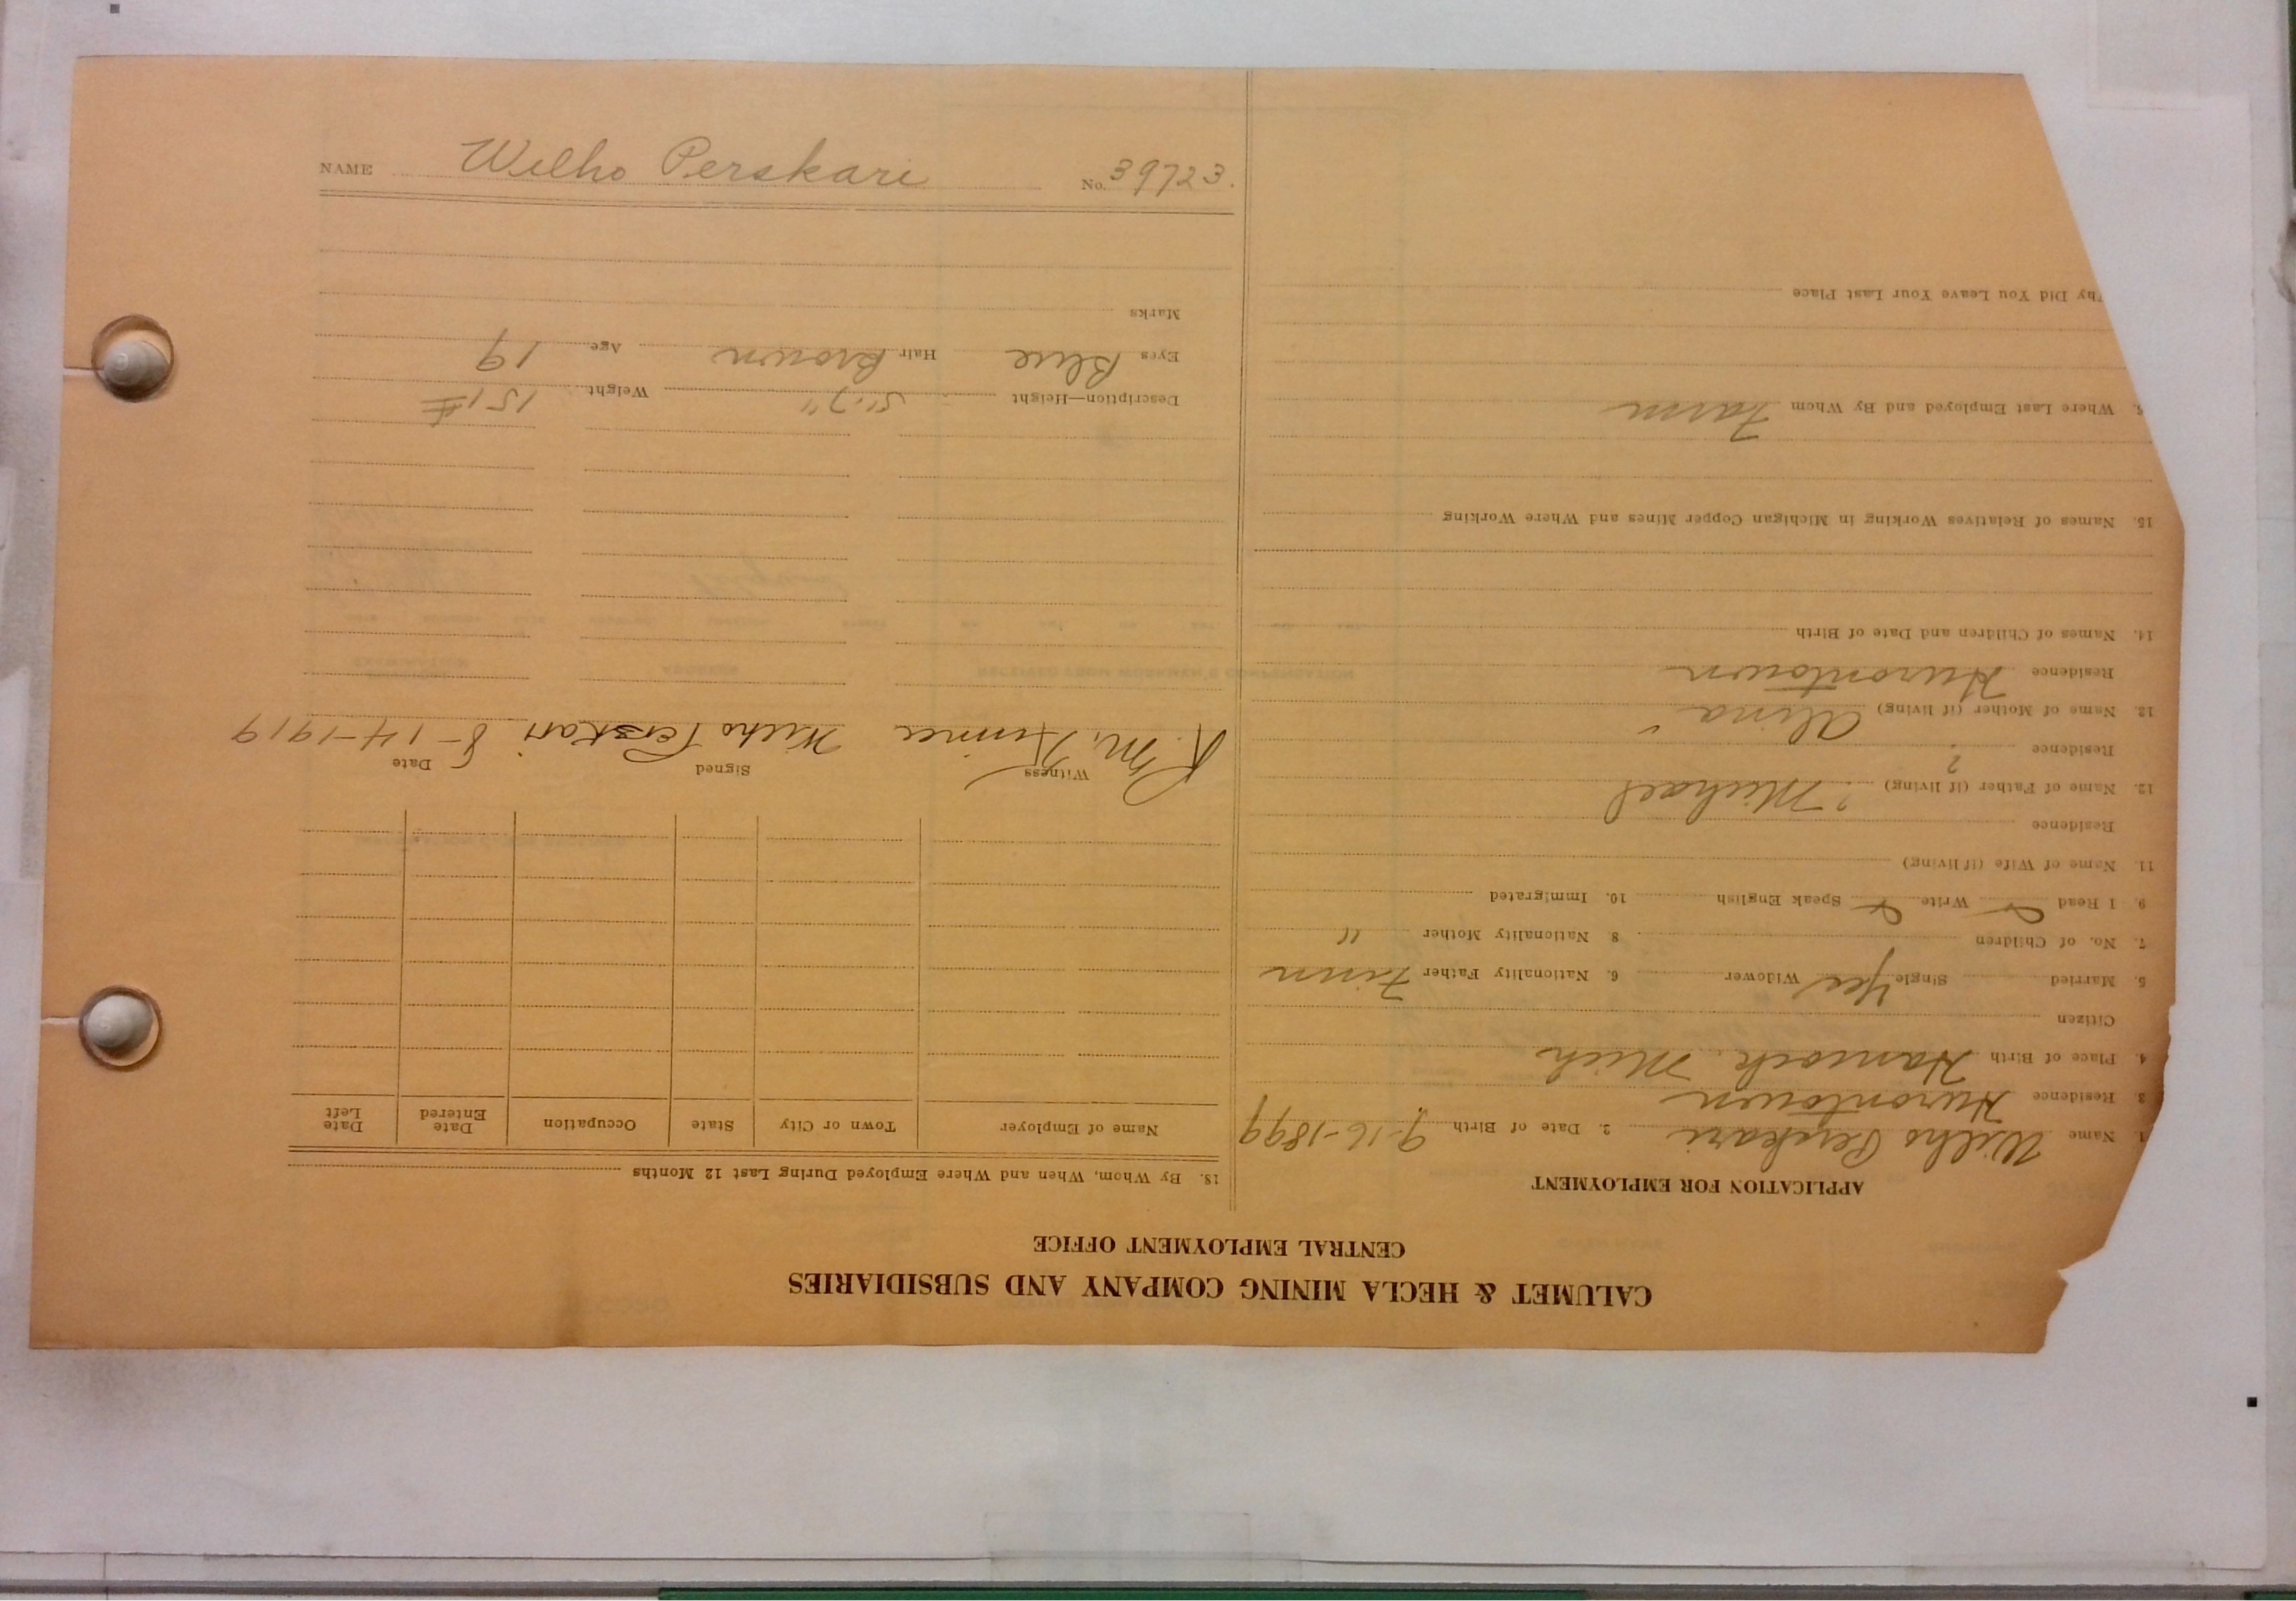 NAME Wilho Perskari No. 39723.
CALUMET & HECLA MINING COMPANY AND SUBSIDIARIES
CENTRAL EMPLOYMENT OFFICE
APPLICATION FOR EMPLOYMENT
1. Name Wilho Perskari 2. Date of Birth 9-16-1899
3. Residence Hurontown
4. Place of Birth Hancock Mich
Citizen
5. Married Single Yes Widower 6. Nationality Father Finn
7. No. of Children 8. Nationality Mother "
9. I Read Write Speak English 10. Immigrated
11. Name of Wife (if living)
Residence
12. Name of Father (if living) ? Michael
Residence ?
13. Name of Mother (if living) Alina
Residence Hurontown
14. Names of Children and Date of Birth
15. Names of Relatives Working in Michigan Copper Mines and Where Working
Where Last Employed and By Whom Farm
hy Did You Leave Your Last Place
18. By Whom, When and Where Employed During Last 12 Months
Name of Employer Town or City State Occupation Date Entered Date Left
Witness Signed Date
R. M. Wilho Perskari 8-14-1919
Description—Height 5'.7" Weight 151 #
Eyes Blue Hair Brown Age 19
Marks